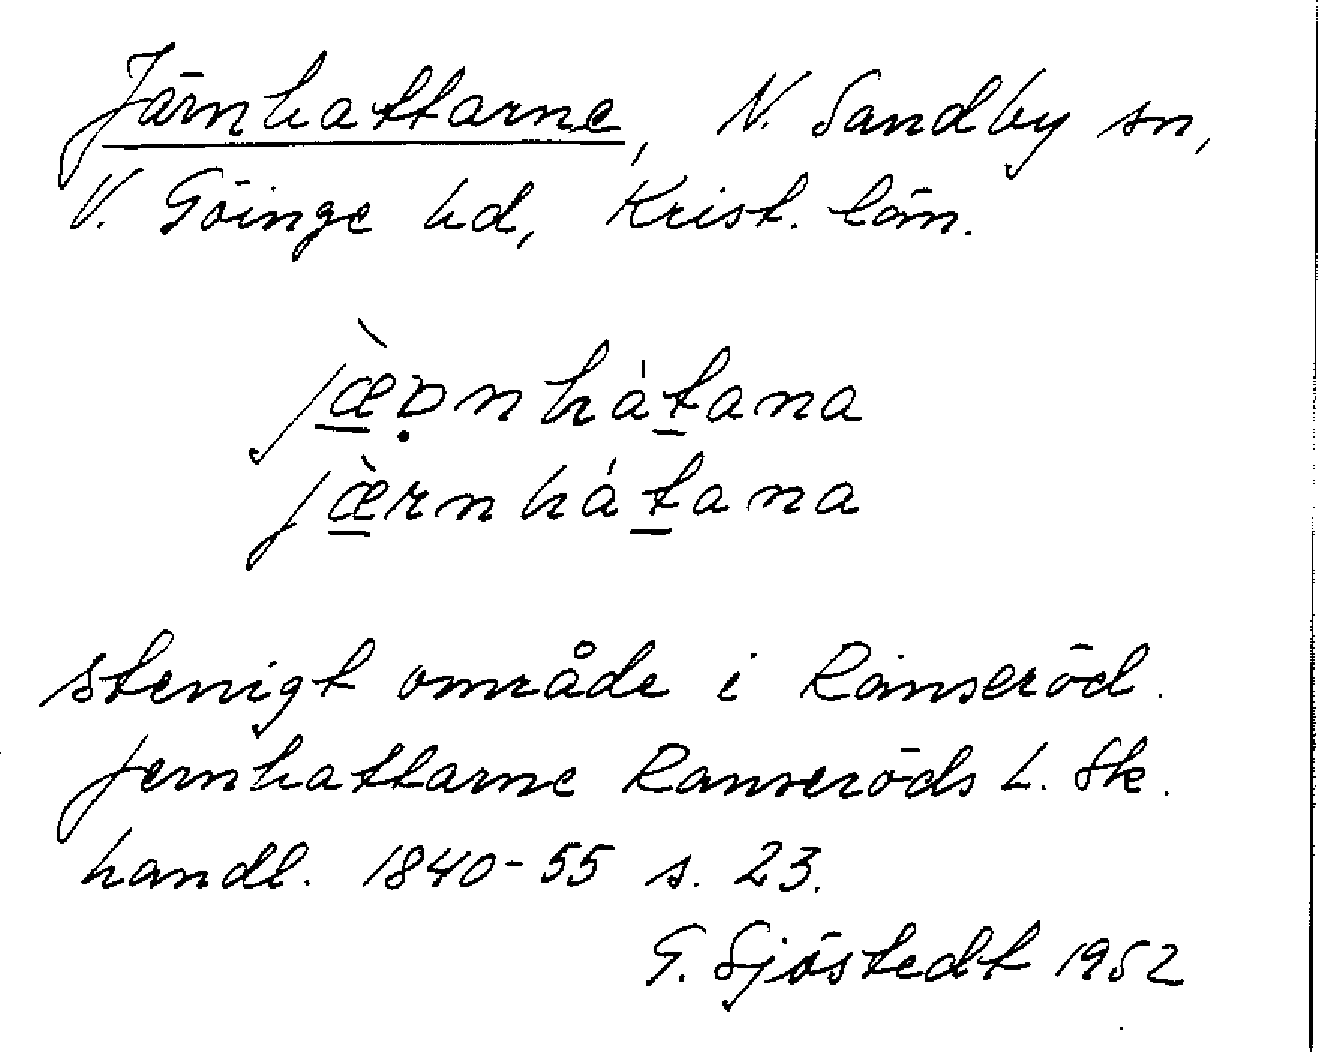 Järnhattarne, N. Sandby sn,
V. Göinge hd, Krist. län.
jæ̀rnhátana
stenigt område i Ränseröd.
Jernhattarne Ranseröds L. Sk.
handl. 1840-55 s. 23.
G. Sjöstedt 1952